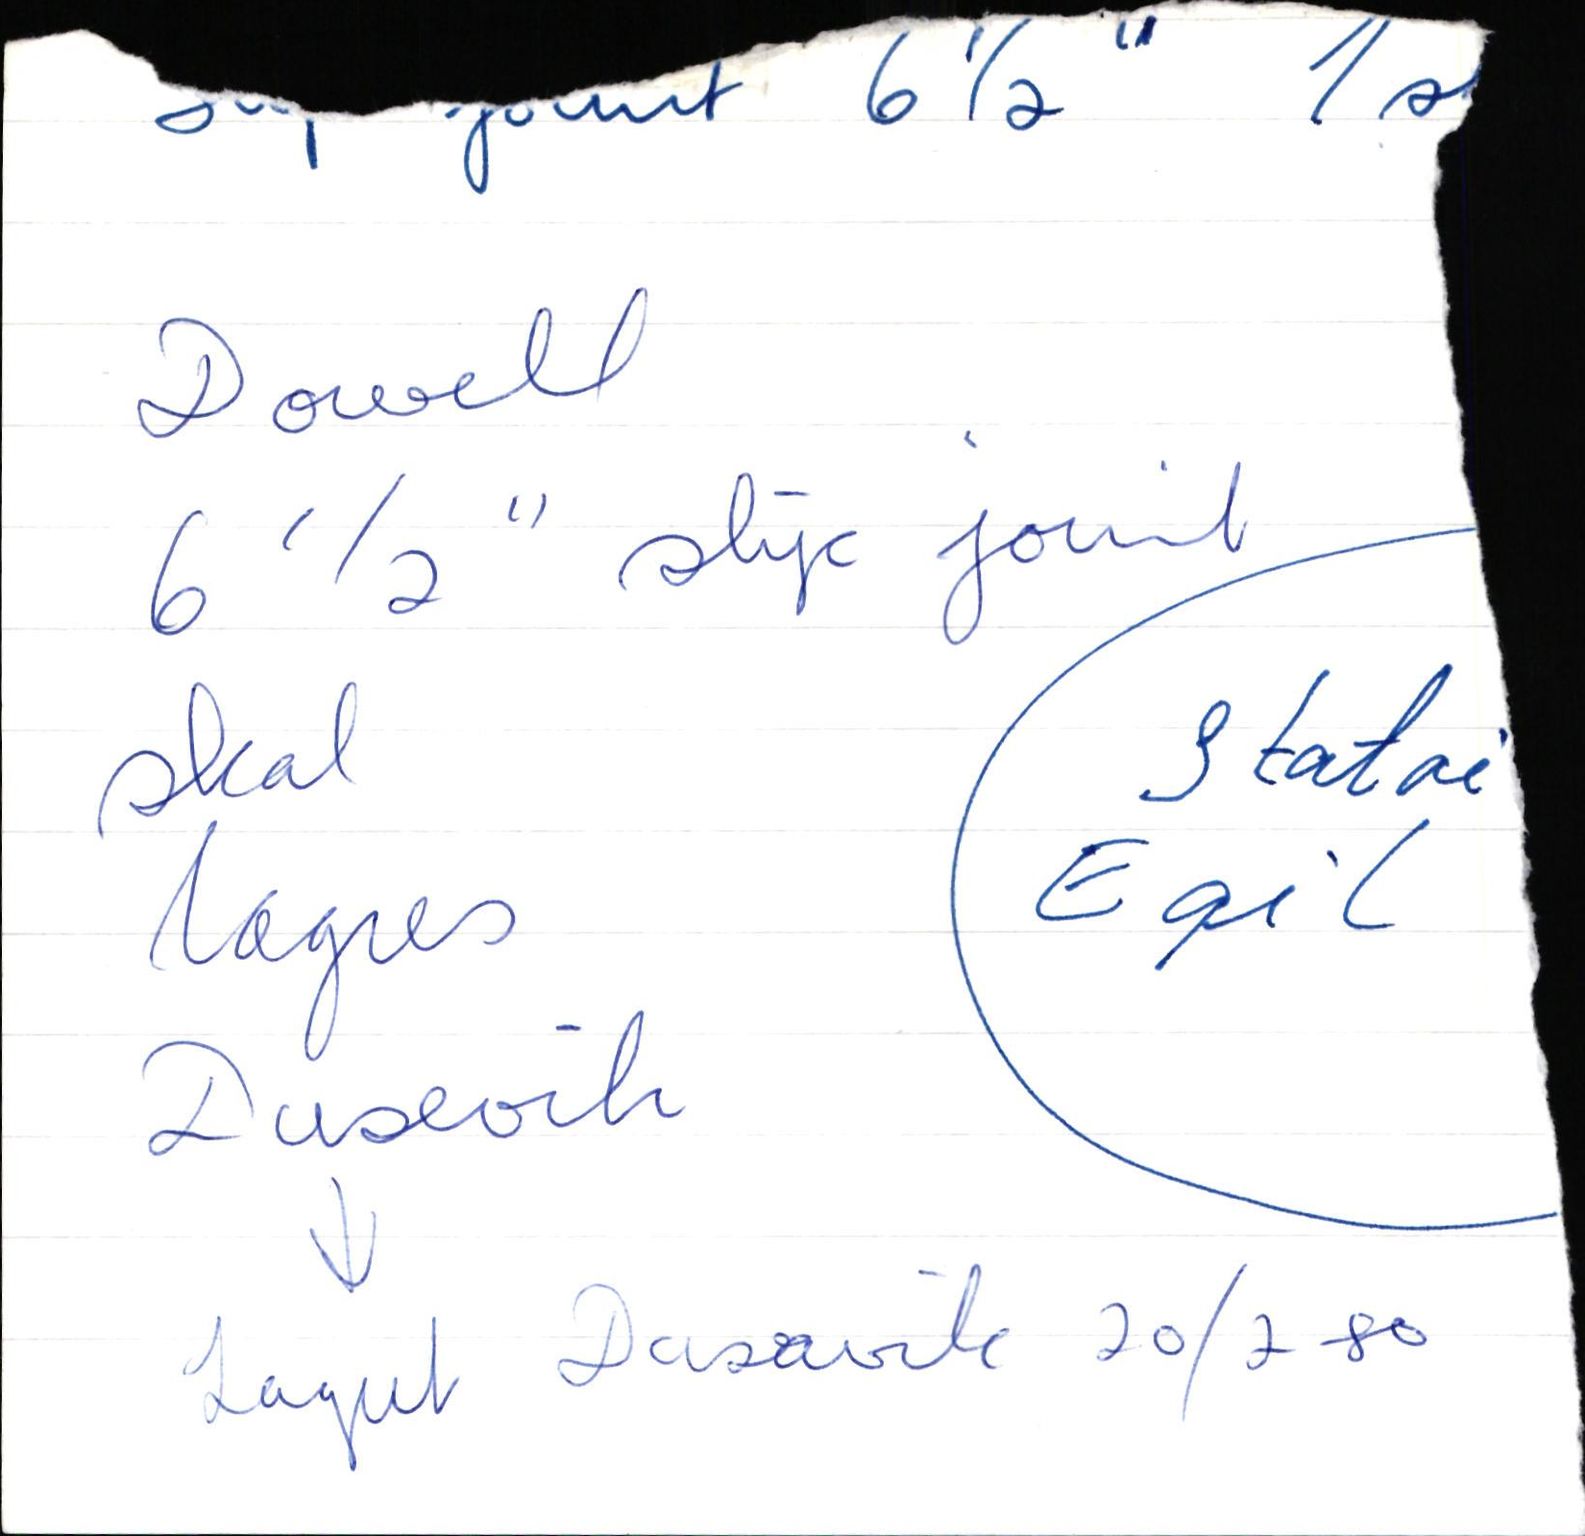 slip joint 6 1/2" 1 s
Dowell
6 1/2" slip joint
skal
lagres
Dusevik
Statoi
Egil
Lagret Dusavik 20/2 80